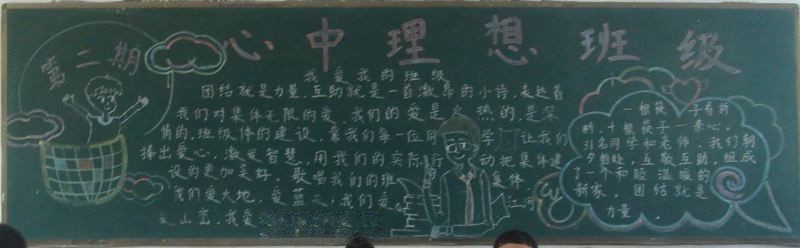 第二期
心中理想班级
我爱我的班级
团结就是力量,互助就是一首激昂的小诗,表达着
我们对集体无限的爱,我们的爱是火热的,是深
情的,班级体的建设,靠我们每一位同学,让我们
捧出爱心,激发智慧,用我们的实际行动把集体建
设的更加美好,歌唱我们的班集体,
我们爱大地,爱蓝天,我们爱江河
爱山峦,我爱
一根筷子易折
断,十根筷子一条心。
31名同学和老师,我们朝
夕相处,互敬互助,组成
了一个和睦温暖的
新家,团结就是
力量。